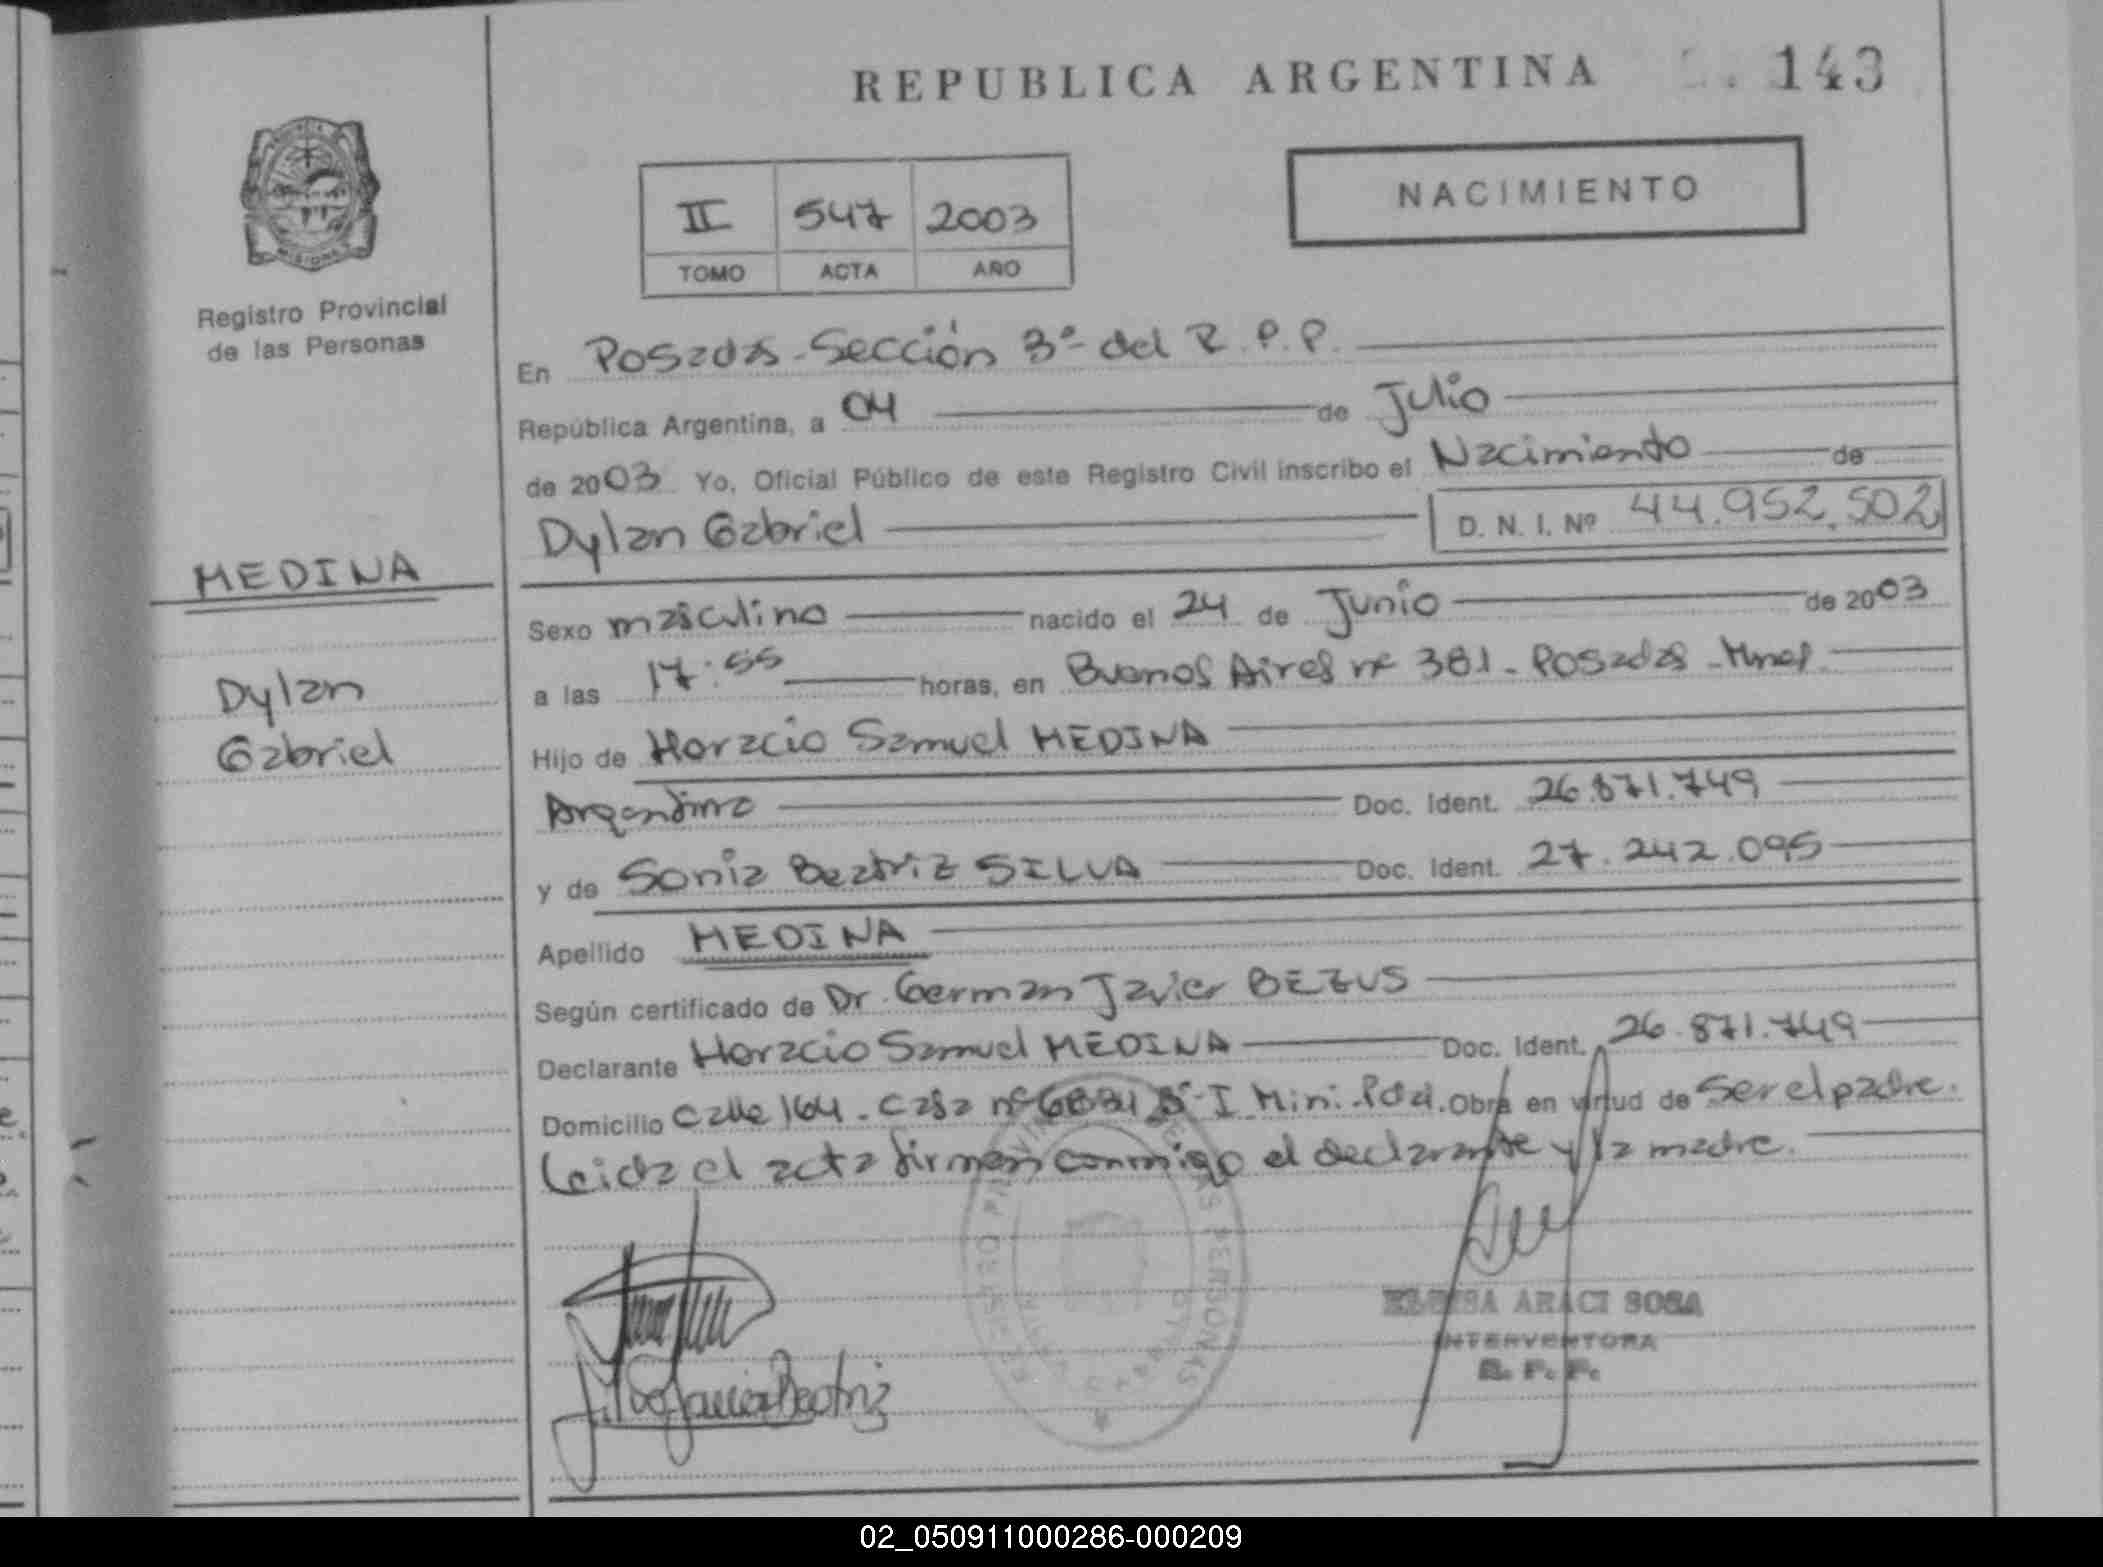 REPUBLICA ARGENTINA 143
NACIMIENTO
II 547 2003
TOMO ACTA AÑO
Registro Provincial
de las Personas
MEDINA
Dylan
Gabriel
En Posadas - Sección 3ª del R.P.P.
República Argentina, a 04 de Julio
de 2003 Yo, Oficial Público de este Registro Civil inscribo el Nacimiento de
Dylan Gabriel D. N. I. Nº 44.952.502
Sexo masculino nacido el 24 de Junio de 2003
a las 17:55 horas, en Buenos Aires nº 381 - Posadas - Mnes
Hijo de Horacio Samuel MEDINA
Argentino Doc. Ident. 26.871.749
y de Sonia Beatriz SILVA Doc. Ident. 27.242.095
Apellido MEDINA
Según certificado de Dr. German Javier BEZUS
Declarante Horacio Samuel MEDINA Doc. Ident. 26.871.749
Domicilio Calle 164 - Casa nº I Mini. Obra en virtud de Ser el padre.
Leida el acta firman conmigo el declarante y la madre.
Beatriz
REGISTRO PROVINCIAL DE LAS PERSONAS
ELOISA ARACI SOSA
INTERVENTORA
R. P. P.
02_050911000286-000209